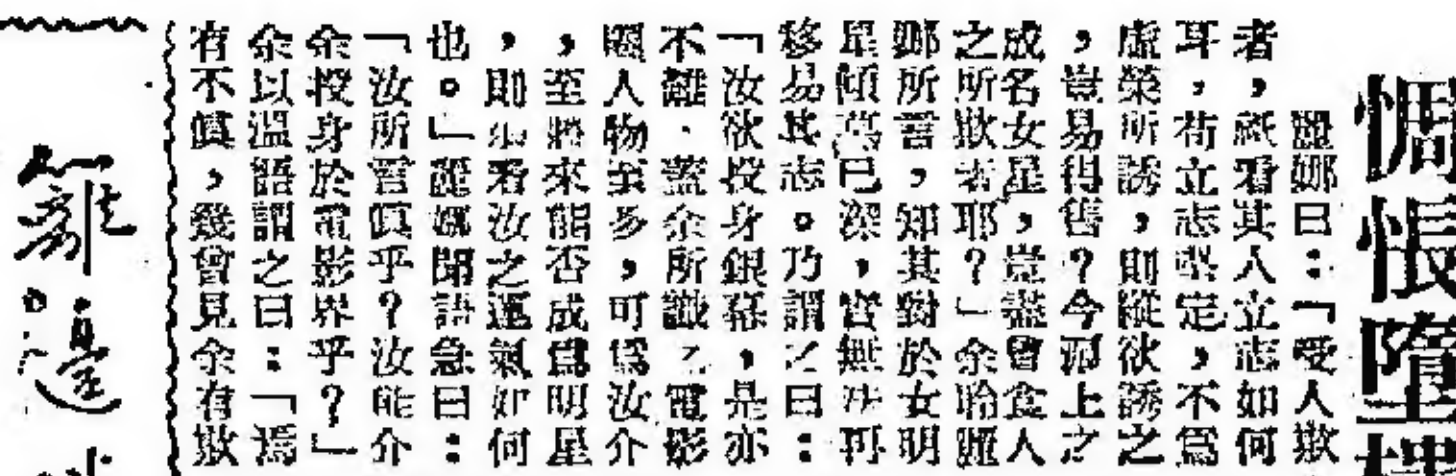 惆悵墮
麗娜曰：「受人欺
者，紙看其人立志如何
耳，苟立志堅定，不爲
虛榮所誘，則縱欲誘之
，豈易得售？今源上之
成名女星，豈盡曾食人
之所欺者耶？」余聆麗
娜所言，知其對於女明
星傾慕已深，實無法再
移易其志。乃謂之曰：
「汝欲投身銀幕，是亦
不難，蓋余所識之電影
圈人物至多，可爲汝介
，至將來能否成爲明星
，則須看汝之運氣如何
也。」麗娜聞語急曰：
「汝所言眞乎？汝能介
余投身於電影界乎？」
余以溫語謂之曰：「焉
有不眞，幾曾見余有欺
籬邊